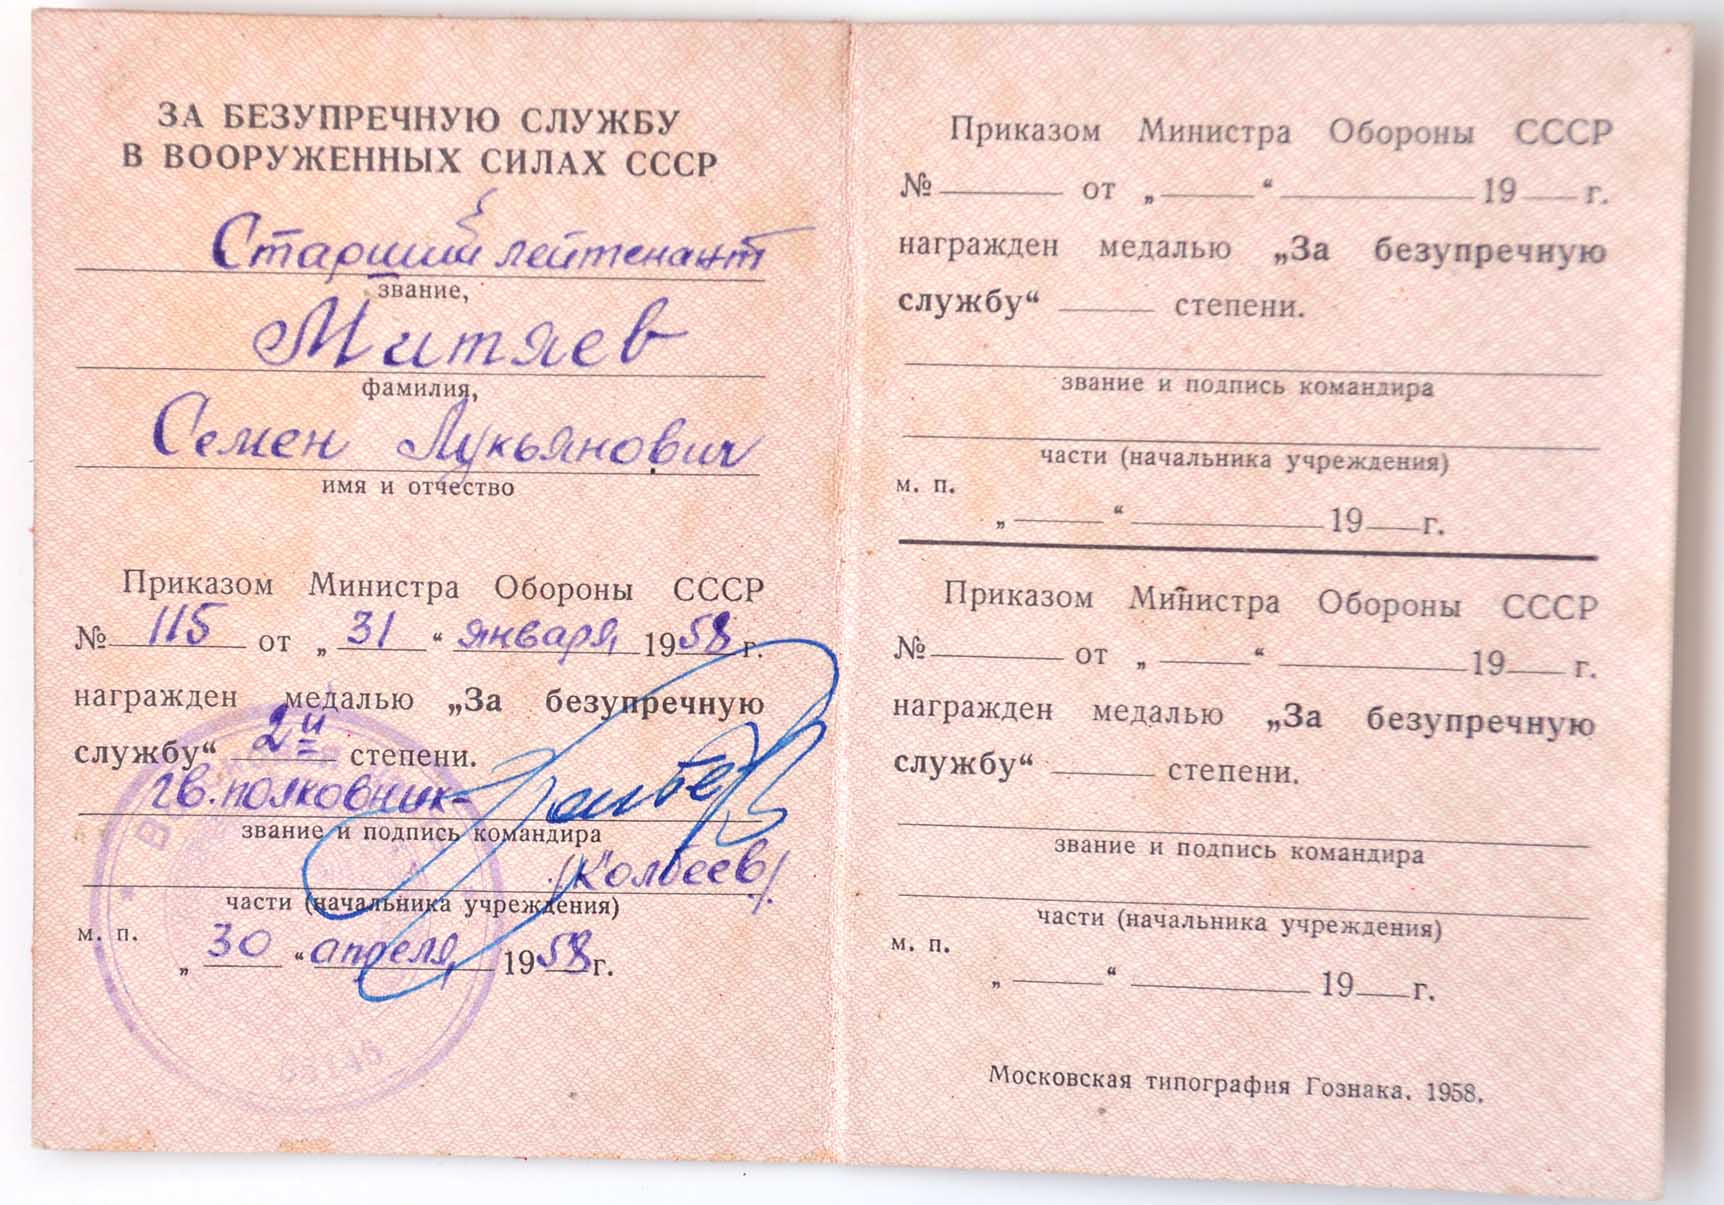 ЗА БЕЗУПРЕЧНУЮ СЛУЖБУ
В ВООРУЖЕННЫХ СИЛАХ СССР
Старший лейтенант
звание,
Митяев
фамилия,
Семен Лукьянович
имя и отчество
Приказом Министра Обороны СССР
№ 115 от „ 31 “ января 1958 г.
награжден медалью „За безупречную
службу“ 2й степени.
гв. полковник-
звание и подпись командира
/Колбеев/
части (начальника учреждения)
м. п.
„ 30 “ апреля 1958 г.
Приказом Министра Обороны СССР
№ от „ “ 19 г.
награжден медалью „За безупречную
службу“ степени.
звание и подпись командира
части (начальника учреждения)
м. п.
„ “ 19 г.
Приказом Министра Обороны СССР
№ от „ “ 19 г.
награжден медалью „За безупречную
службу“ степени.
звание и подпись командира
части (начальника учреждения)
м. п.
„ “ 19 г.
Московская типография Гознака. 1958.